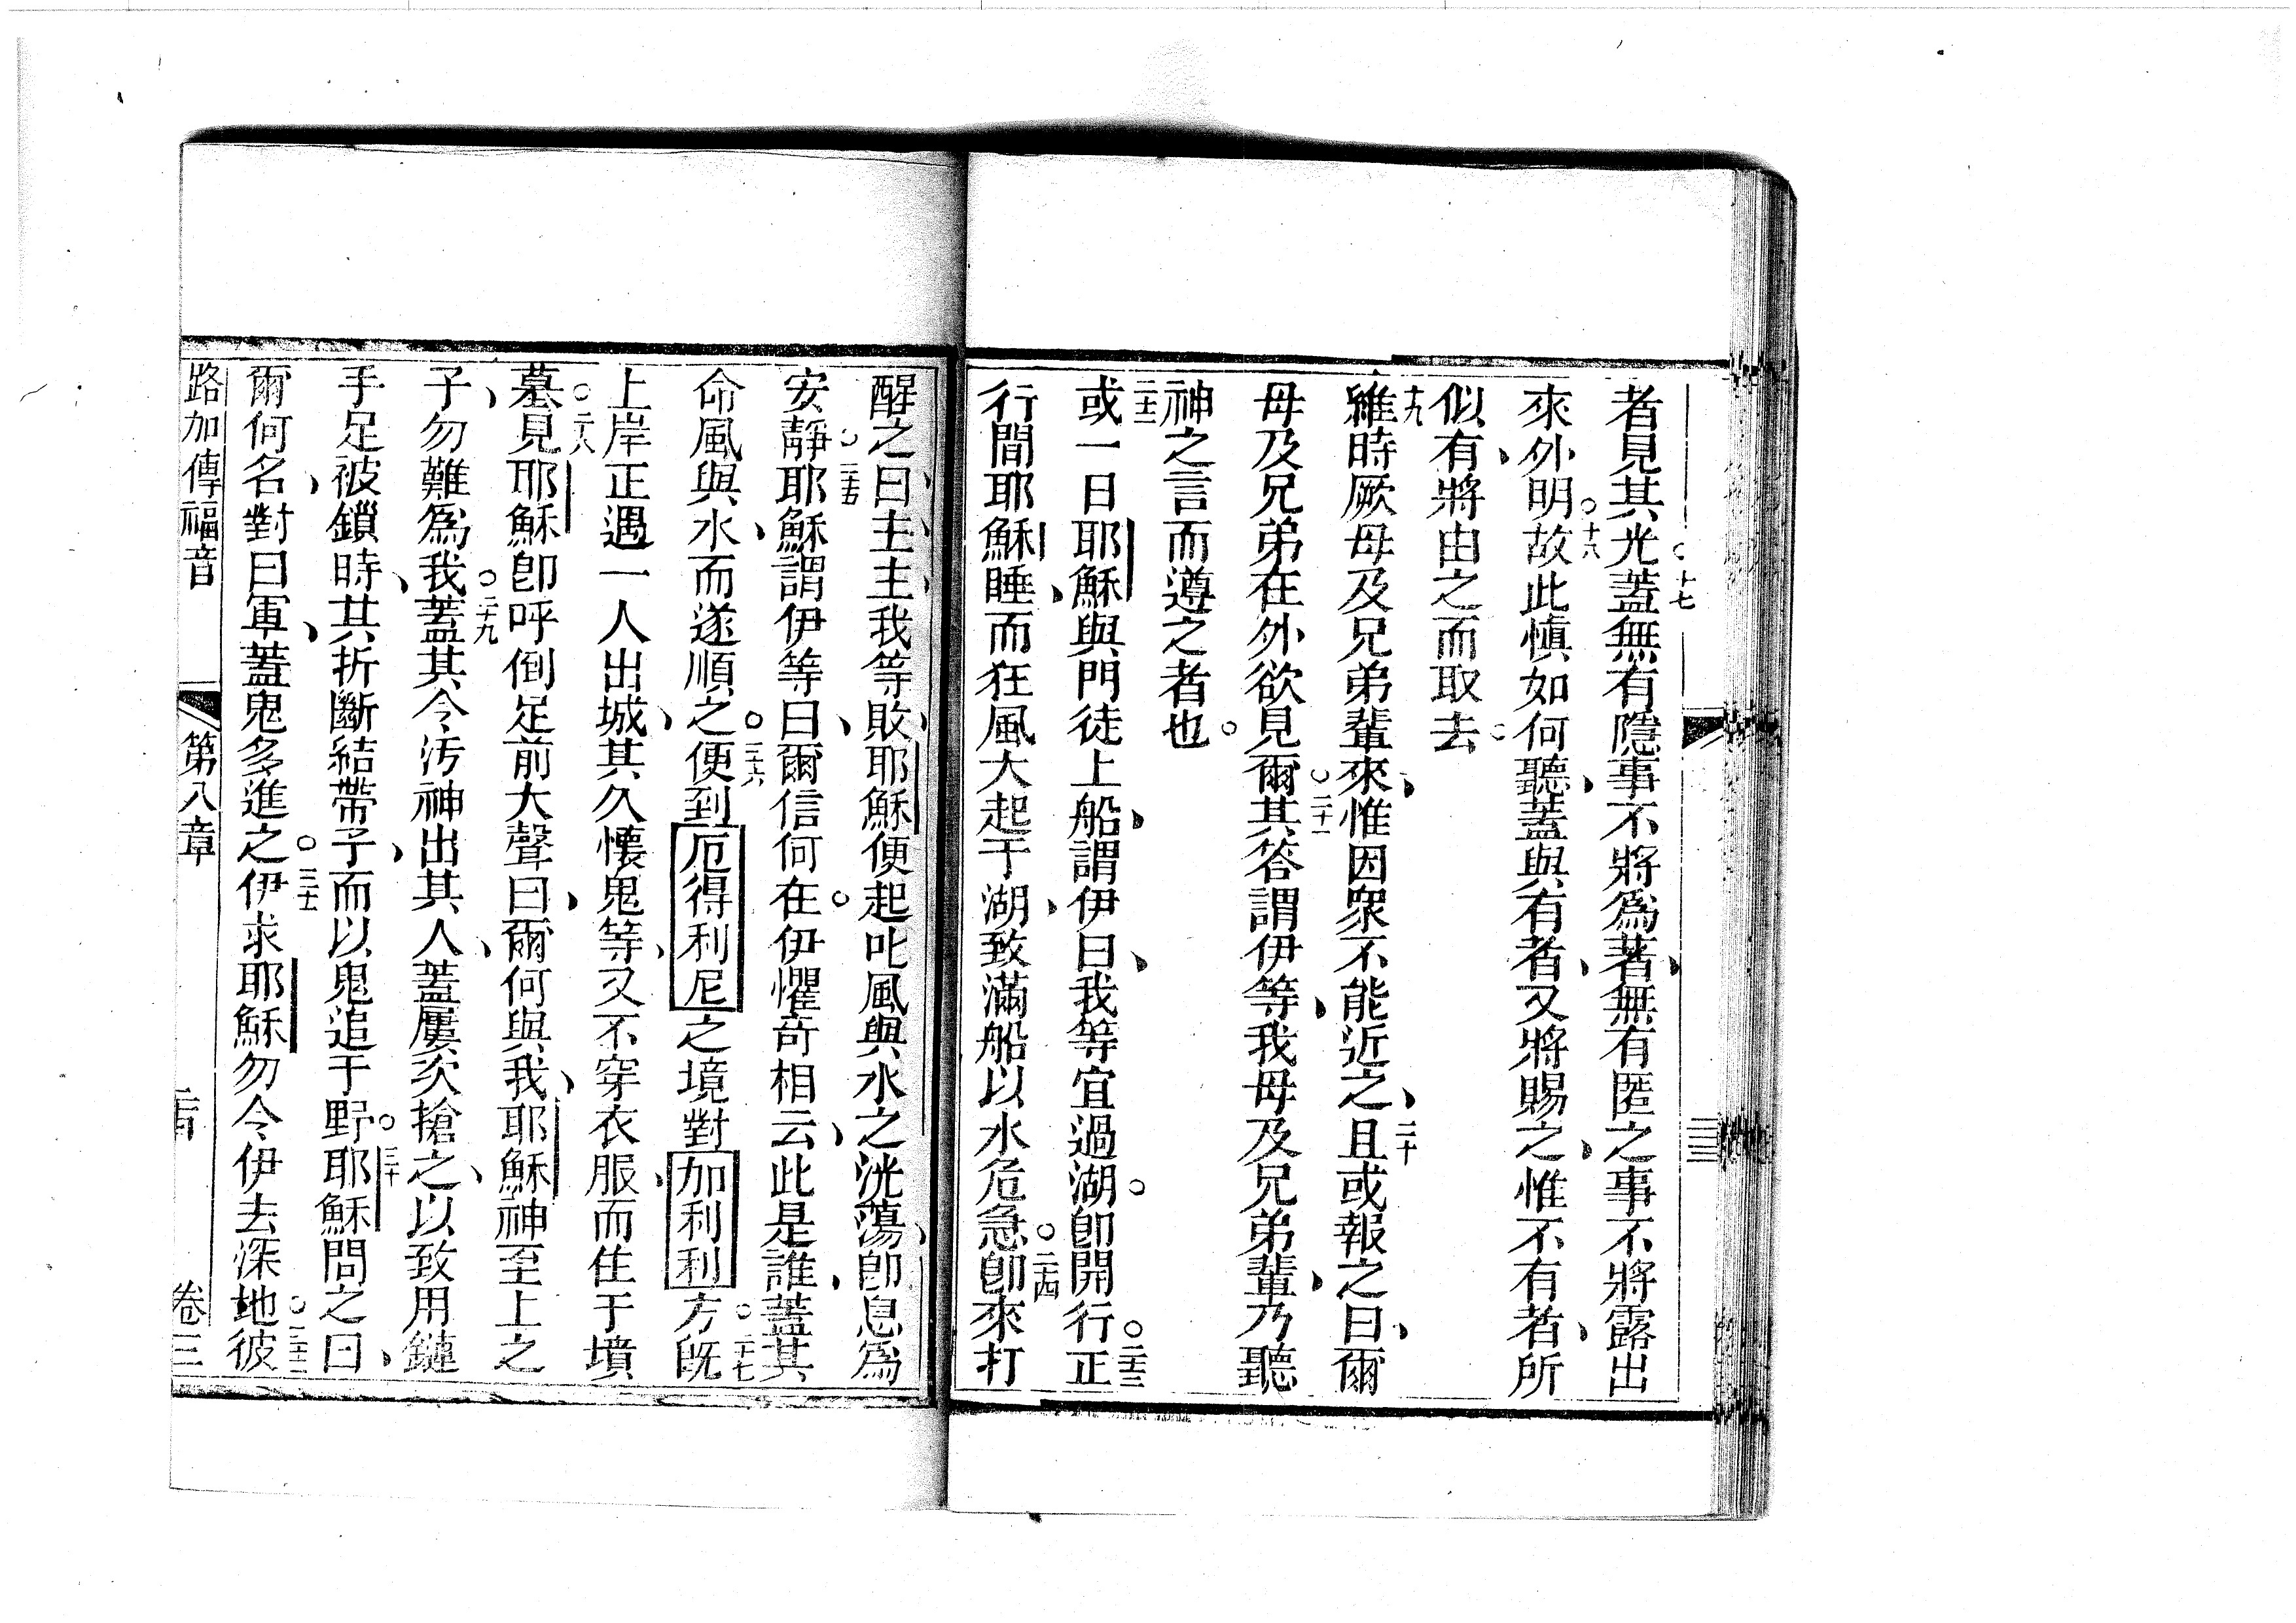 者見其光。十七蓋無有隱事不將爲著、無有匿之事不將露出
來外明。十八故此愼如何聽、蓋與有者、又將賜之、惟不有者、所
似有、將由之而取去。
十九維時厥母及兄弟輩來、惟因衆不能近之、二十且或報之曰、爾
母及兄弟在外欲見爾。二十一其答謂伊等、我母及兄弟輩、乃聽
神之言而遵之者也。
二十二或一日耶穌與門徒上船、謂伊曰、我等宜過湖。卽開行。二十三正
行間耶穌睡、而狂風大起于湖、致滿船以水危急。二十四卽來打
醒之、曰、主主、我等敗、耶穌便起叱風與水之洸蕩、卽息爲
安靜。二十五耶穌謂伊等曰、爾信何在。伊懼奇相云、此是誰、蓋其
命風與水、而遂順之。二十六便到厄得利尼之境對加利利方。二十七旣
上岸正遇一人出城、其久懷鬼等、又不穿衣服、而住于墳
墓。二十八見耶穌卽呼倒足前大聲曰、爾何與我、耶穌神至上之
子、勿難爲我。二十九蓋其令汚神出其人、蓋屢次搶之、以致用鏈
手足被鎖時、其折斷結帶子、而以鬼追于野。三十耶穌問之曰、
爾何名、對曰軍、蓋鬼多進之。三十一伊求耶穌勿令伊去深地。三十二彼
路加傳福音 第八章 卷三